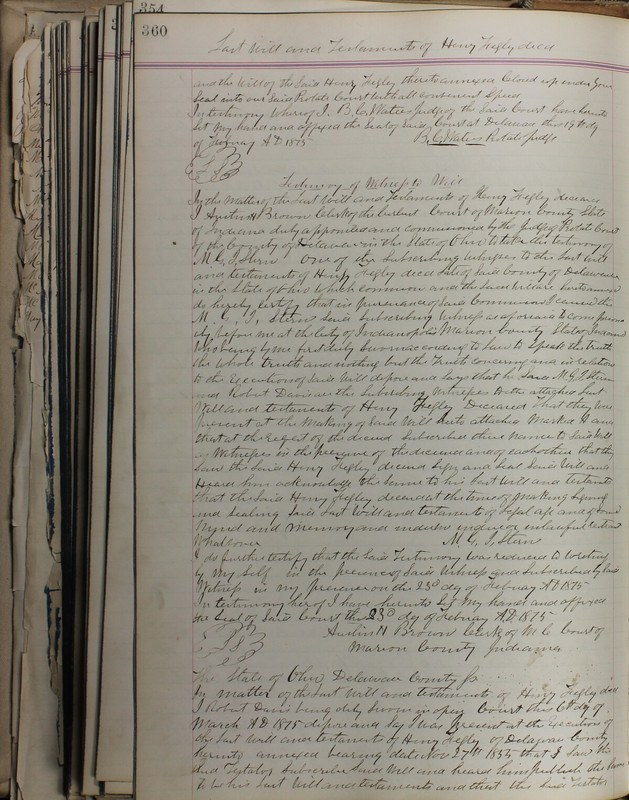 354
360
Last Will and Testaments of Henry Hegley decd
and the Will of the Said Henry Hegley thereto annexed Closed up under Your
Seal into our Said Probate Court with all convenient Speed
In testimony whereof I. B. C. Waters Judge of the Said Court have hereunto
Set My hand and affixed the Seal of Said Court at Delaware this 19th dy
of Febuay AD 1875 B. C. Waters Probate Judge
Testimony of Witness to Will
In the Matter of the Last Will and Testaments of Henry Hegley deceased
I Austin H Brown Clerk of the Court of Marion County State
of Indiana duly appointed and commissioned by the Judge of Probate Court
of the County of Delaware in the State of Ohio to take the testimony of
M. G. I. Stern One of the Subscribing Witnesses to the Last Will
and testaments of Henry Hegley decd late of Said County of Delaware
in the State of Ohio Which and the Said Will are hereto annexed
do hereby certify that in pursuance of Said Commission I caused the
M. G. I. Stern Said Subscribing Witness as aforesaid to come
before me at the City of Indianapolis Marion County State of Indiana
Who being by me first duly Sworn according to Law to Speak the truth
the Whole truth and nothing but the Truth concerning and in relation
to the Execution of Said Will depose and Says that he Said M. G. I. Stern
and Robert Davis are the Subscribing Witnesses to the attached Last
Will and testaments of Henry Hegley Deceased That they was
Present at the Making of Said Will attached Marked A and
that at the Request of the deceased Subscribed their names to Said Will
as Witnesses in the presence of the deceased and of each other that they
Saw the Said Henry Hegley deceased Sign and Seal Said Will and
Heard him acknowledge the Same to his Last Will and testaments
that the Said Henry Hegley deceased at the time of Making Signing
and Sealing Said Last Will and testaments of Legal age and of Sound
Mynd and Memory and under
Whatsoever M. G. I. Stern
I do further testify that the Said Testimony Was reduced to Writing
by My Self in the presence of Said Witness and Subscribed by Said
Witness in my presence on the 23d day of Febuay AD 1875
In testimony hereof I have hereunto Set My hand and affixed
the Seal of Said Court this 23d day of Febuay AD 1875
Austin H Brown Clerk of M. C Court of
Marion County Indianna
The State of Ohio Delaware County Ss
In matter of the Last Will and testaments of Henry Hegley decd
I Robert Davis being duly Sworn in open Court this 6th day of
March AD 1875 depose and Say I Was present at the Execution of
the Last Will and testaments of Henry Hegley of Delaware County
hereunto annexed bearing date Nov 27th that I Saw the
Said Testator Subscribe Said Will and heard him publish the Same
to be his Last Will and testaments and that the Said Testator